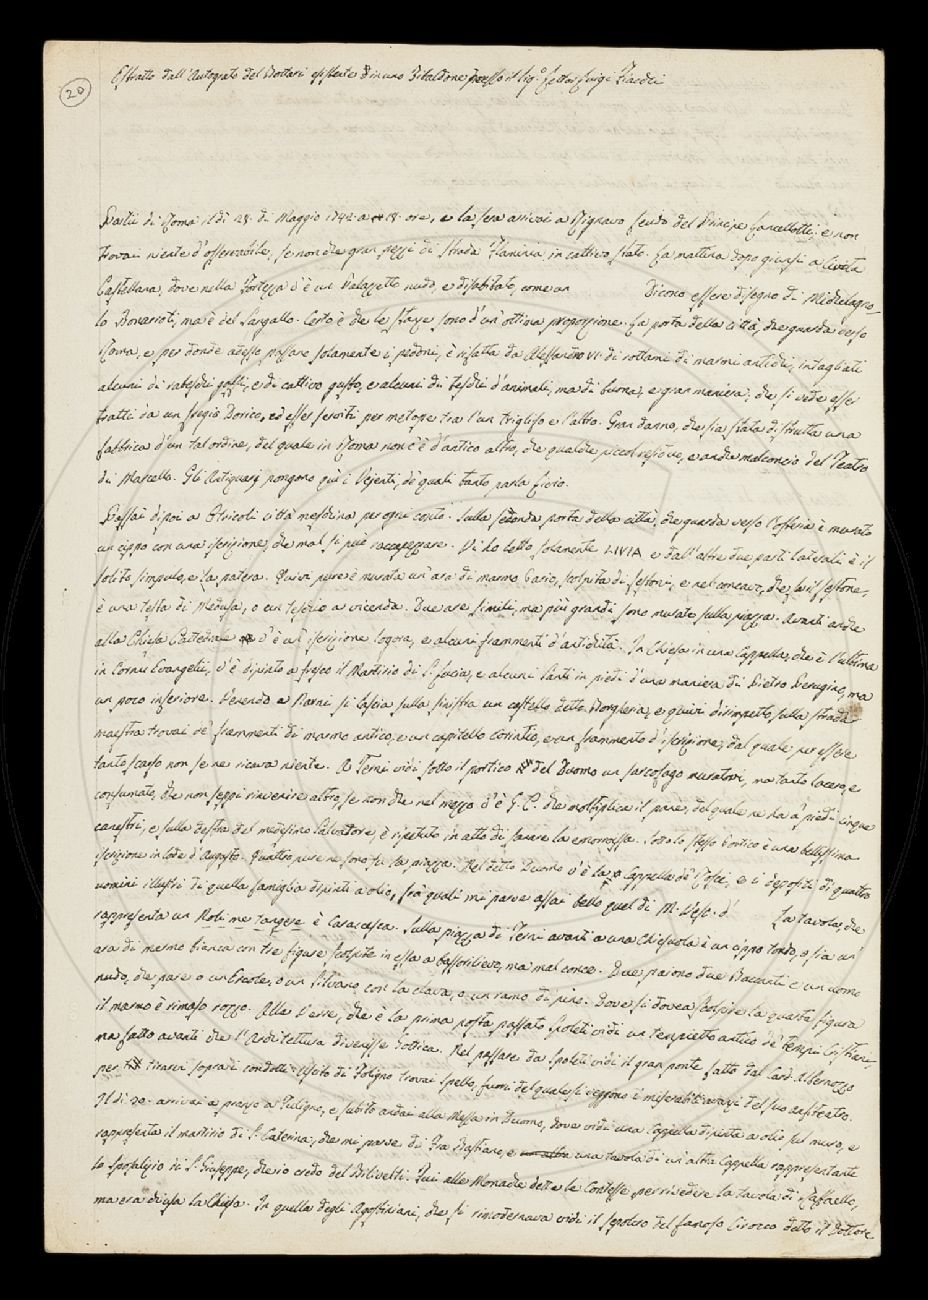 20
Estratto dall'Autografo del Bottari esistente in uno Zibaldone presso il Sig.r Lettor Luigi
Partii di Roma il dì 28. di Maggio 1742. a 18. ore, e la sera arrivai a Rignano feudo del Principe Lancellotti, e non
trovai niente d'osservabile, se non che gran pezzi di strada Flaminia in cattivo stato. La mattina dopo giunsi a Civita
Castellana, dove nella Fortezza v'è un Palazzetto nudo, e disabitato, come un Dicono essere disegno di Michelagno-
lo Bonarroti, ma è del Sangallo. Certo è che le stanze sono d'un'ottima proporzione. La porta della città, che guarda verso
Roma, e per donde adesso passano solamente i pedoni, è rifatta da Alessandro VI. di rottami di marmi antichi, intagliati
alcuni di rabeschi goffi, e di cattivo gusto, e alcuni di teschi d'animali, ma di buona, e gran maniera, che si vede esser
tratti da un fregio Dorico, ed esser serviti per metope tra l'un triglifo e l'altro. Gran danno, che sia stata distrutta una
fabbrica d'un tal ordine, del quale in Roma non c'è d'antico altro, che qualche piccol residuo, e anche malconcio del Teatro
di Marcello. Gli Antiquarj pongono qui i Vejenti, de' quali tanto parla Livio.
Passai di poi a Otricoli città meschina per ogni conto. Sulla seconda porta della città, che guarda verso l'osteria è murato
un cippo con una iscrizione, che mal si può raccapezzare. Vi ho letto solamente LIVIA e dall'altre due parti laterali è il
solito simpulo, e la patera. Quivi pure è murata un'ara di marmo Pario, scolpita di festoni, e nel concavo, che fa il festone,
è una testa di Medusa, o un teschio a vicenda. Due are simili, ma più grandi sono murate sulla piazza. Avanti anche
alla Chiesa Cattedrale v'è un'iscrizione logora, e alcuni frammenti d'antichità. In Chiesa in una Cappella, che è l'ultima
in Cornu Evangelii, v'è dipinto a fresco il Martirio di S. Lucia, e alcuni Santi in piedi d'una maniera di Pietro Perugino, ma
un poco inferiore. Venendo a Narni si lascia sulla sinistra un castello detto Borgheria, e quivi dirimpetto sulla strada
maestra trovai de' frammenti di marmo antico, e un capitello corintio, e un frammento d'iscrizione, dal quale per essere
tanto scarso non se ne ricava niente. A Terni vidi sotto il portico del Duomo un sarcofago ma tanto lacero, e
consumato, che non seppi rinvenire altro, se non che nel mezzo v'è G. C. che moltiplica il pane, del quale ne ha a' piedi cinque
canestri, e sulla destra del medesimo Salvatore, è ripetuto in atto di sanare la emorroissa. Sotto lo stesso Portico è una bellissima
iscrizione in lode d'Augusto. Quattro pure ne sono su la piazza. Nel detto Duomo v'è la Cappella de' e i depositi di quattro
uomini illustri di quella famiglia dipinti a olio, fra quali mi parve assai bello quel di M. Vesc. d' La tavola, che
rappresenta un Noli me tangere è Caracesca. Sulla piazza di Terni avanti a una Chiesuola è un cippo tondo, o sia un'
ara di marmo bianco con tre figure scolpite in essa a bassorilievo, ma mal conce. Due paiono due Baccanti e un uomo
nudo, che pare o un Ercole, o un Silvano con la clava, o un ramo di pino. Dove si dovea scolpire la quarta figura
il marmo è rimaso rozzo. Alla Vene, che è la prima posta passato Spoleti vidi un tempietto antico de' tempi Cristiani,
ma fatto avanti che l'Architettura divenisse Gottica. Nel passare da Spoleti vidi il gran ponte fatto dal Card. Albornozzo
per tirarvi sopra i condotti. Uscito di Foligno trovai Spello, fuori del quale si veggono i miserabili avanzi del suo anfiteatro.
Il dì 30. arrivai a pranzo a Fuligno, e subito andai alla Messa in Duomo, dove vidi una Cappella dipinta a olio sul muro, e
rappresenta il martirio di S. Caterina, che mi parve di Fra Bastiano, e una tavola di un'altra Cappella rappresentante
lo sposalizio di S. Giuseppe, che io credo del Bilivelti. Fui alle Monache dette le Contesse per rivedere la tavola di Raffaello,
ma era chiusa la Chiesa. In quella degli Agostiniani, che si rimodernava vidi il sepolcro del famoso Cirocco detto il Dottore